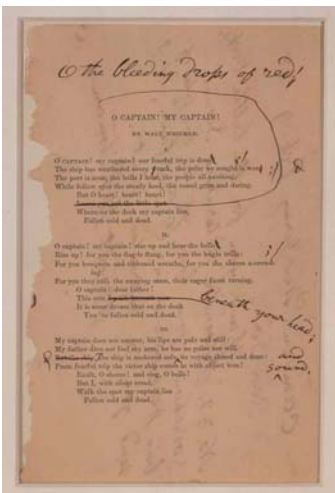 O the bleeding drops of red!
O CAPTAIN! MY CAPTAIN!
BY WALT WHITMAN.
I.
O CAPTAIN! my captain! our fearful trip is done,
The ship has weathered every rack, the prize we sought is won;
The port is near, the bells I hear, the people all exulting,
While follow eyes the steady keel, the vessel grim and daring.
But O heart! heart! heart!
Leave you not the little spot
Where on the deck my captain lies,
Fallen cold and dead.
II.
O captain! my captain! rise up and hear the bells;
Rise up! for you the flag is flung, for you the bugle trills:
For you bouquets and ribboned wreaths, for you the shores a-crowd-
ing:
For you they call, the swaying mass, their eager faces turning.
O captain! dear father!
This arm beneath your head;
It is some dream that on the deck
You've fallen cold and dead.
III.
My captain does not answer, his lips are pale and still:
My father does not feel my arm, he has no pulse nor will.
But the ship The ship is anchored safe, its voyage closed and done: and sound
From fearful trip the victor ship comes in with object won!
Exult, O shores! and ring, O bells!
But I, with silent tread,
Walk the spot my captain lies
Fallen cold and dead.